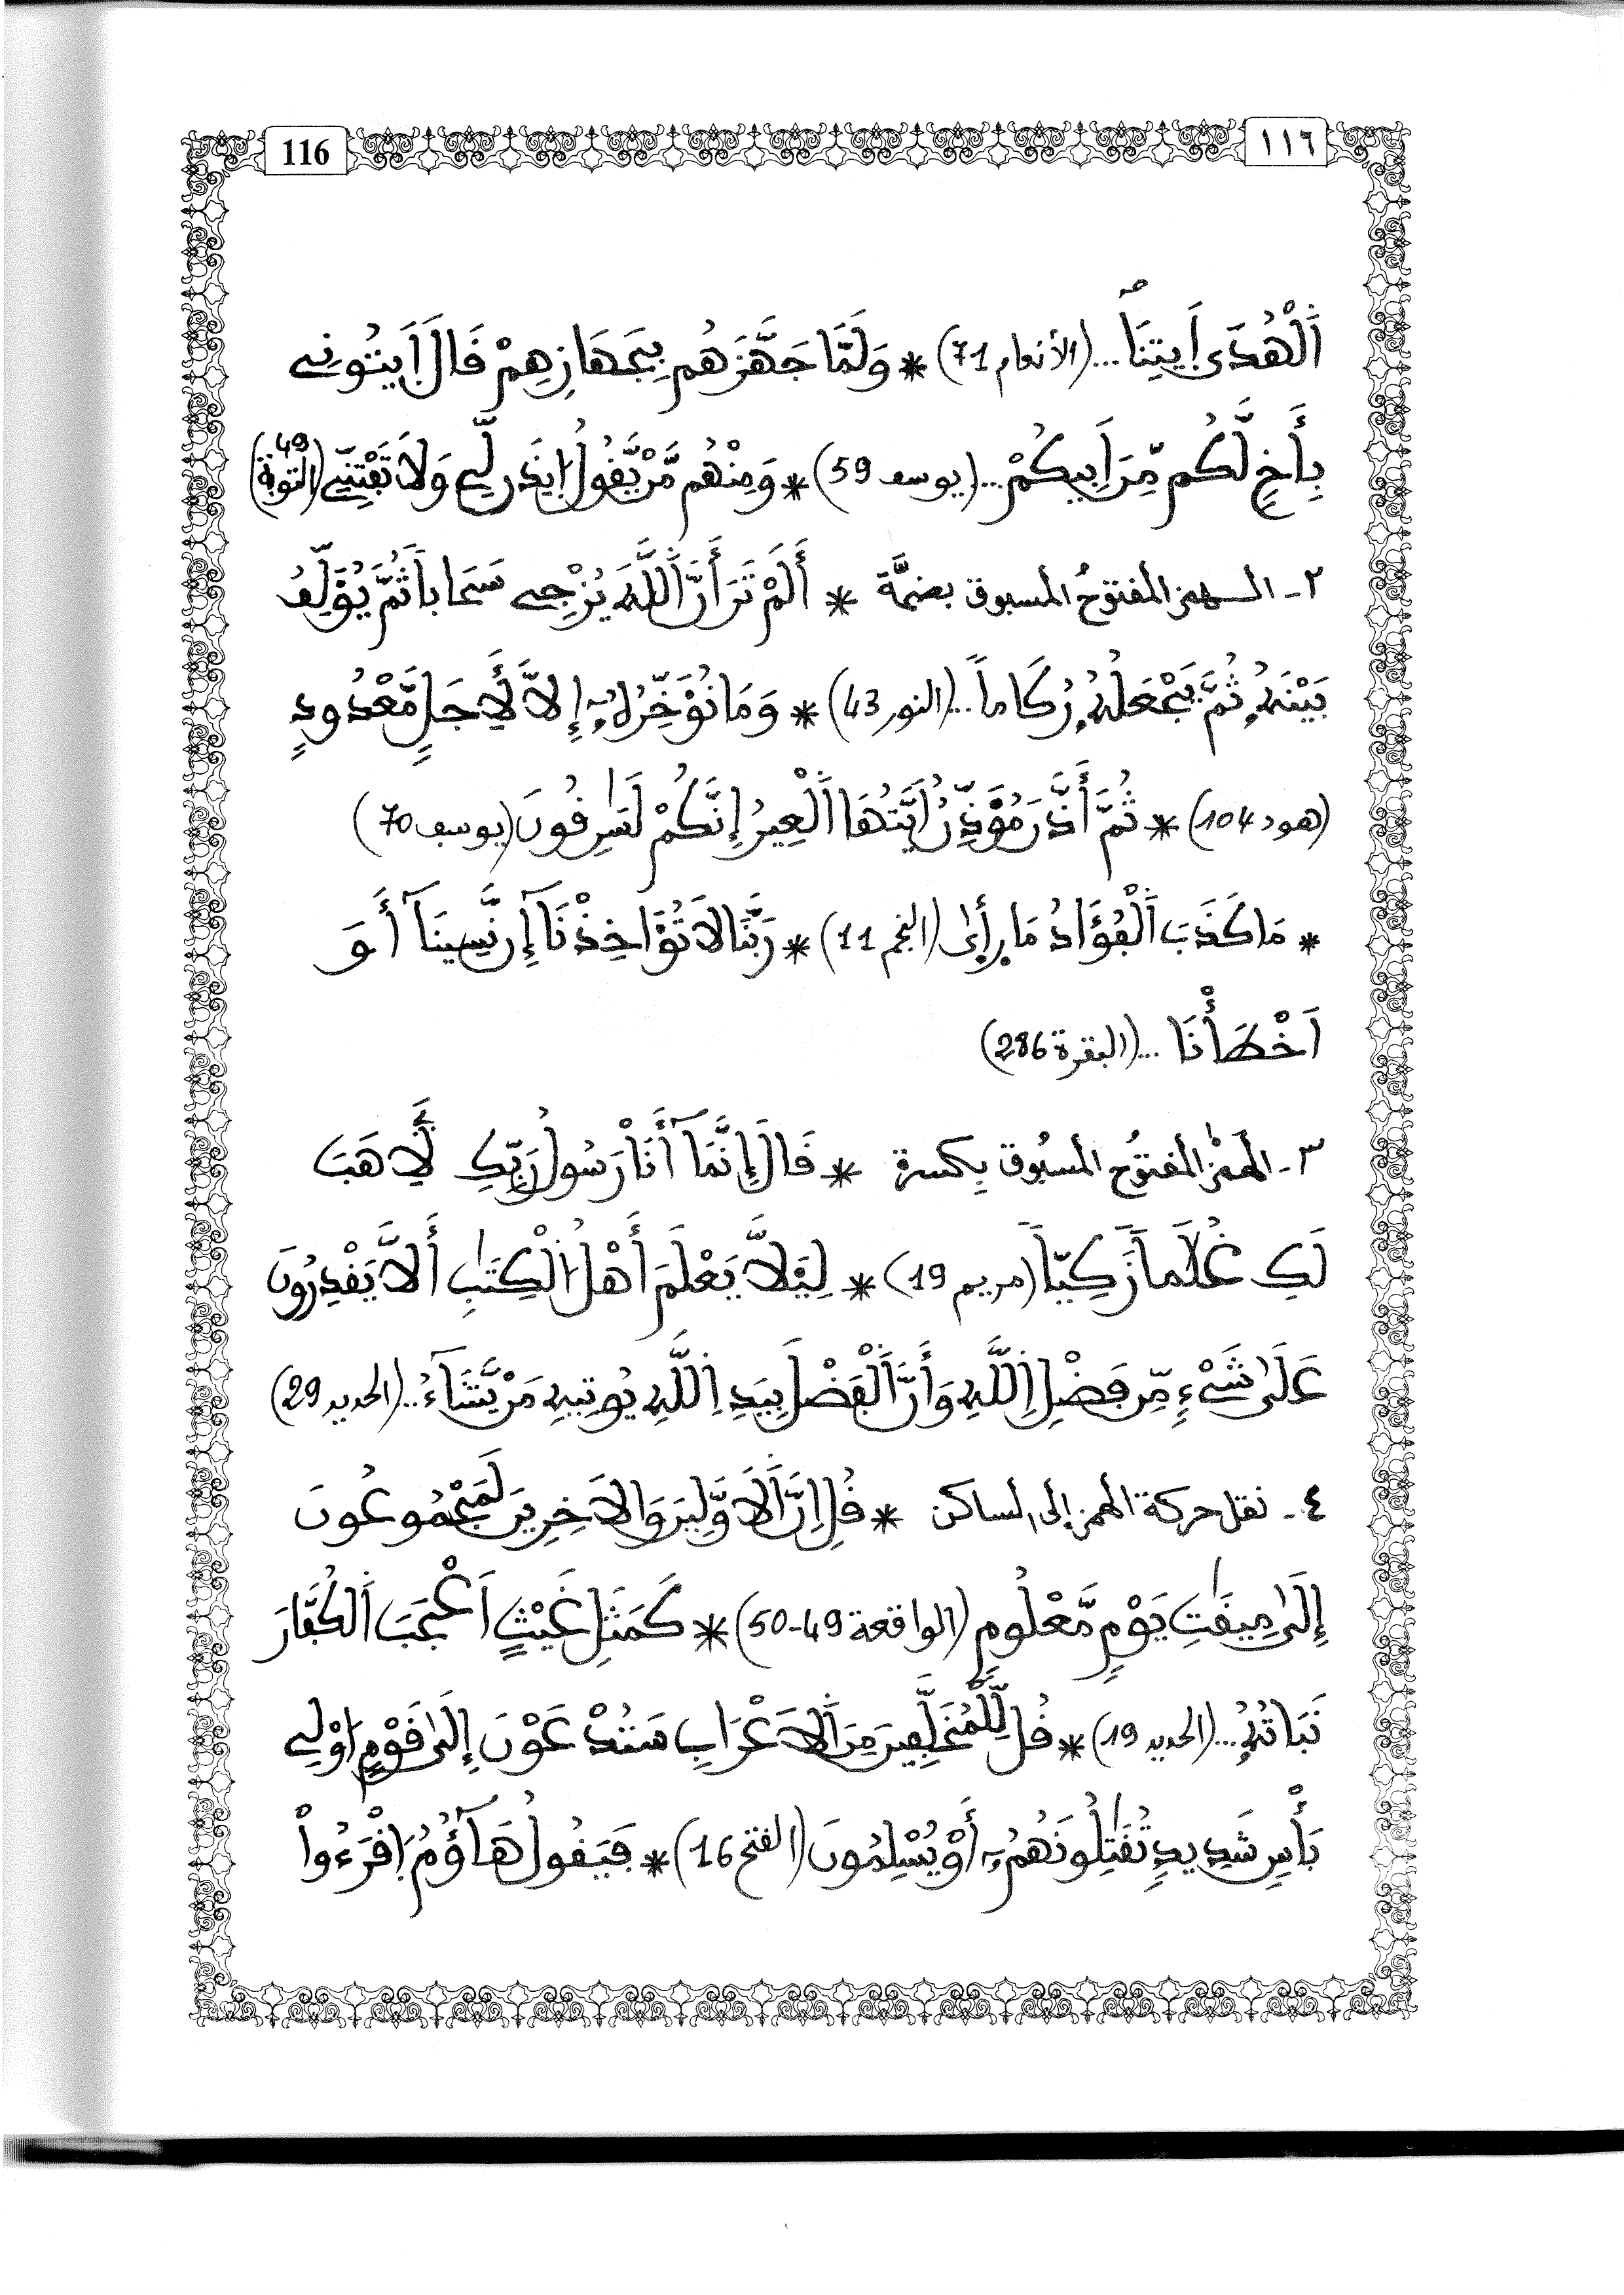 116 ١١٦
اَ۬لْهُدَى اَ۪يتِنَا ... (الأنعام 71) * وَلَمَّا جَهَّزَهُم بِجَهَازِهِمْ قَالَ اَ۪يتُونِے
بِأَخٖ لَّكُم مِّنَ اَبِيكُمْ ... (يوسف 59) * وَمِنْهُم مَّنْ يَّقُولُ اُ۪يذَن لِّے وَلَا تَفْتِنِّےۖ (التوبة 49)
٢- الـهمز المفتوحُ المسبوق بضمَّة * أَلَمْ تَرَ أَنَّ اَ۬للَّهَ يُزْجِے سَحَاباٗ ثُمَّ يُؤَلِّفُ
بَيْنَهُۥ ثُمَّ يَجْعَلُهُۥ رُكَاماٗ ... (النور 43) * وَمَا نُؤَخِّرُهُۥٓ إِلَّا لِأَجَلٖ مَّعْدُودٖ
(هود 104) * ثُمَّ أَذَّنَ مُؤَذِّنٌ اَيَّتُهَا اَ۬لْعِيرُ إِنَّكُمْ لَسَٰرِقُونَ (يوسف 70)
* مَا كَذَبَ اَ۬لْفُؤَادُ مَا رَأ۪ىٰ (النجم 11) * رَبَّنَا لَا تُؤَاخِذْنَآ إِن نَّسِينَآ أَوَ
اَخْطَأْنَا ... (البقرة 286)
٣- الهمْز المفتوُح المسبُوق بِكسرة * قَالَ إِنَّمَآ أَنَا رَسُولُ رَبِّكِ لِأَهَبَ
لَكِ غُلَٰماٗ زَكِيّاٗ (مريم 19) * لِئَلَّا يَعْلَمَ أَهْلُ اُ۬لْكِتَٰبِ أَلَّا يَقْدِرُونَ
عَلَىٰ شَےْءٖ مِّن فَضْلِ اِ۬للَّهِ وَأَنَّ اَ۬لْفَضْلَ بِيَدِ اِ۬للَّهِ يُوتِيهِ مَنْ يَّشَآءُ .. (الحديد 29)
٤- نقل حركة الهمز إلى الساكن * قُلِ اِنَّ اَ۬لَاوَّلِينَ وَالَاخِرِينَ لَمَجْمُوعُونَ
إِلَىٰ مِيقَٰتِ يَوْمٖ مَّعْلُومٖ (الواقعة 49-50) * كَمَثَلِ غَيْثٍ اَعْجَبَ اَ۬لْكُفَّارَ
نَبَاتُهُۥ ... (الحديد 19) * قُل لِّلْمُخَلَّفِينَ مِنَ اَ۬لَاعْرَابِ سَتُدْعَوْنَ إِلَىٰ قَوْمٍ اُوْلِے
بَأْسٖ شَدِيدٖ تُقَٰتِلُونَهُمُۥٓ أَوْ يُسْلِمُونَ (الفتح 16) * فَيَقُولُ هَآؤُمُ اُ۪قْرَءُواْ